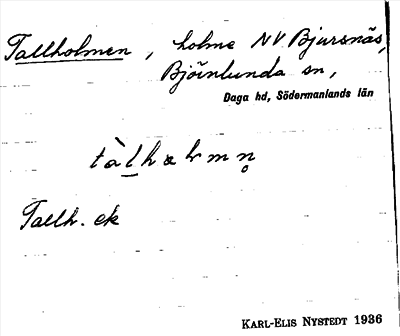 Tallholmen, holme NV Bjursnäs,
Björnlunda sn,
Daga hd, Södermanlands län
Tallh. ek
KARL-ELIS NYSTEDT 1936